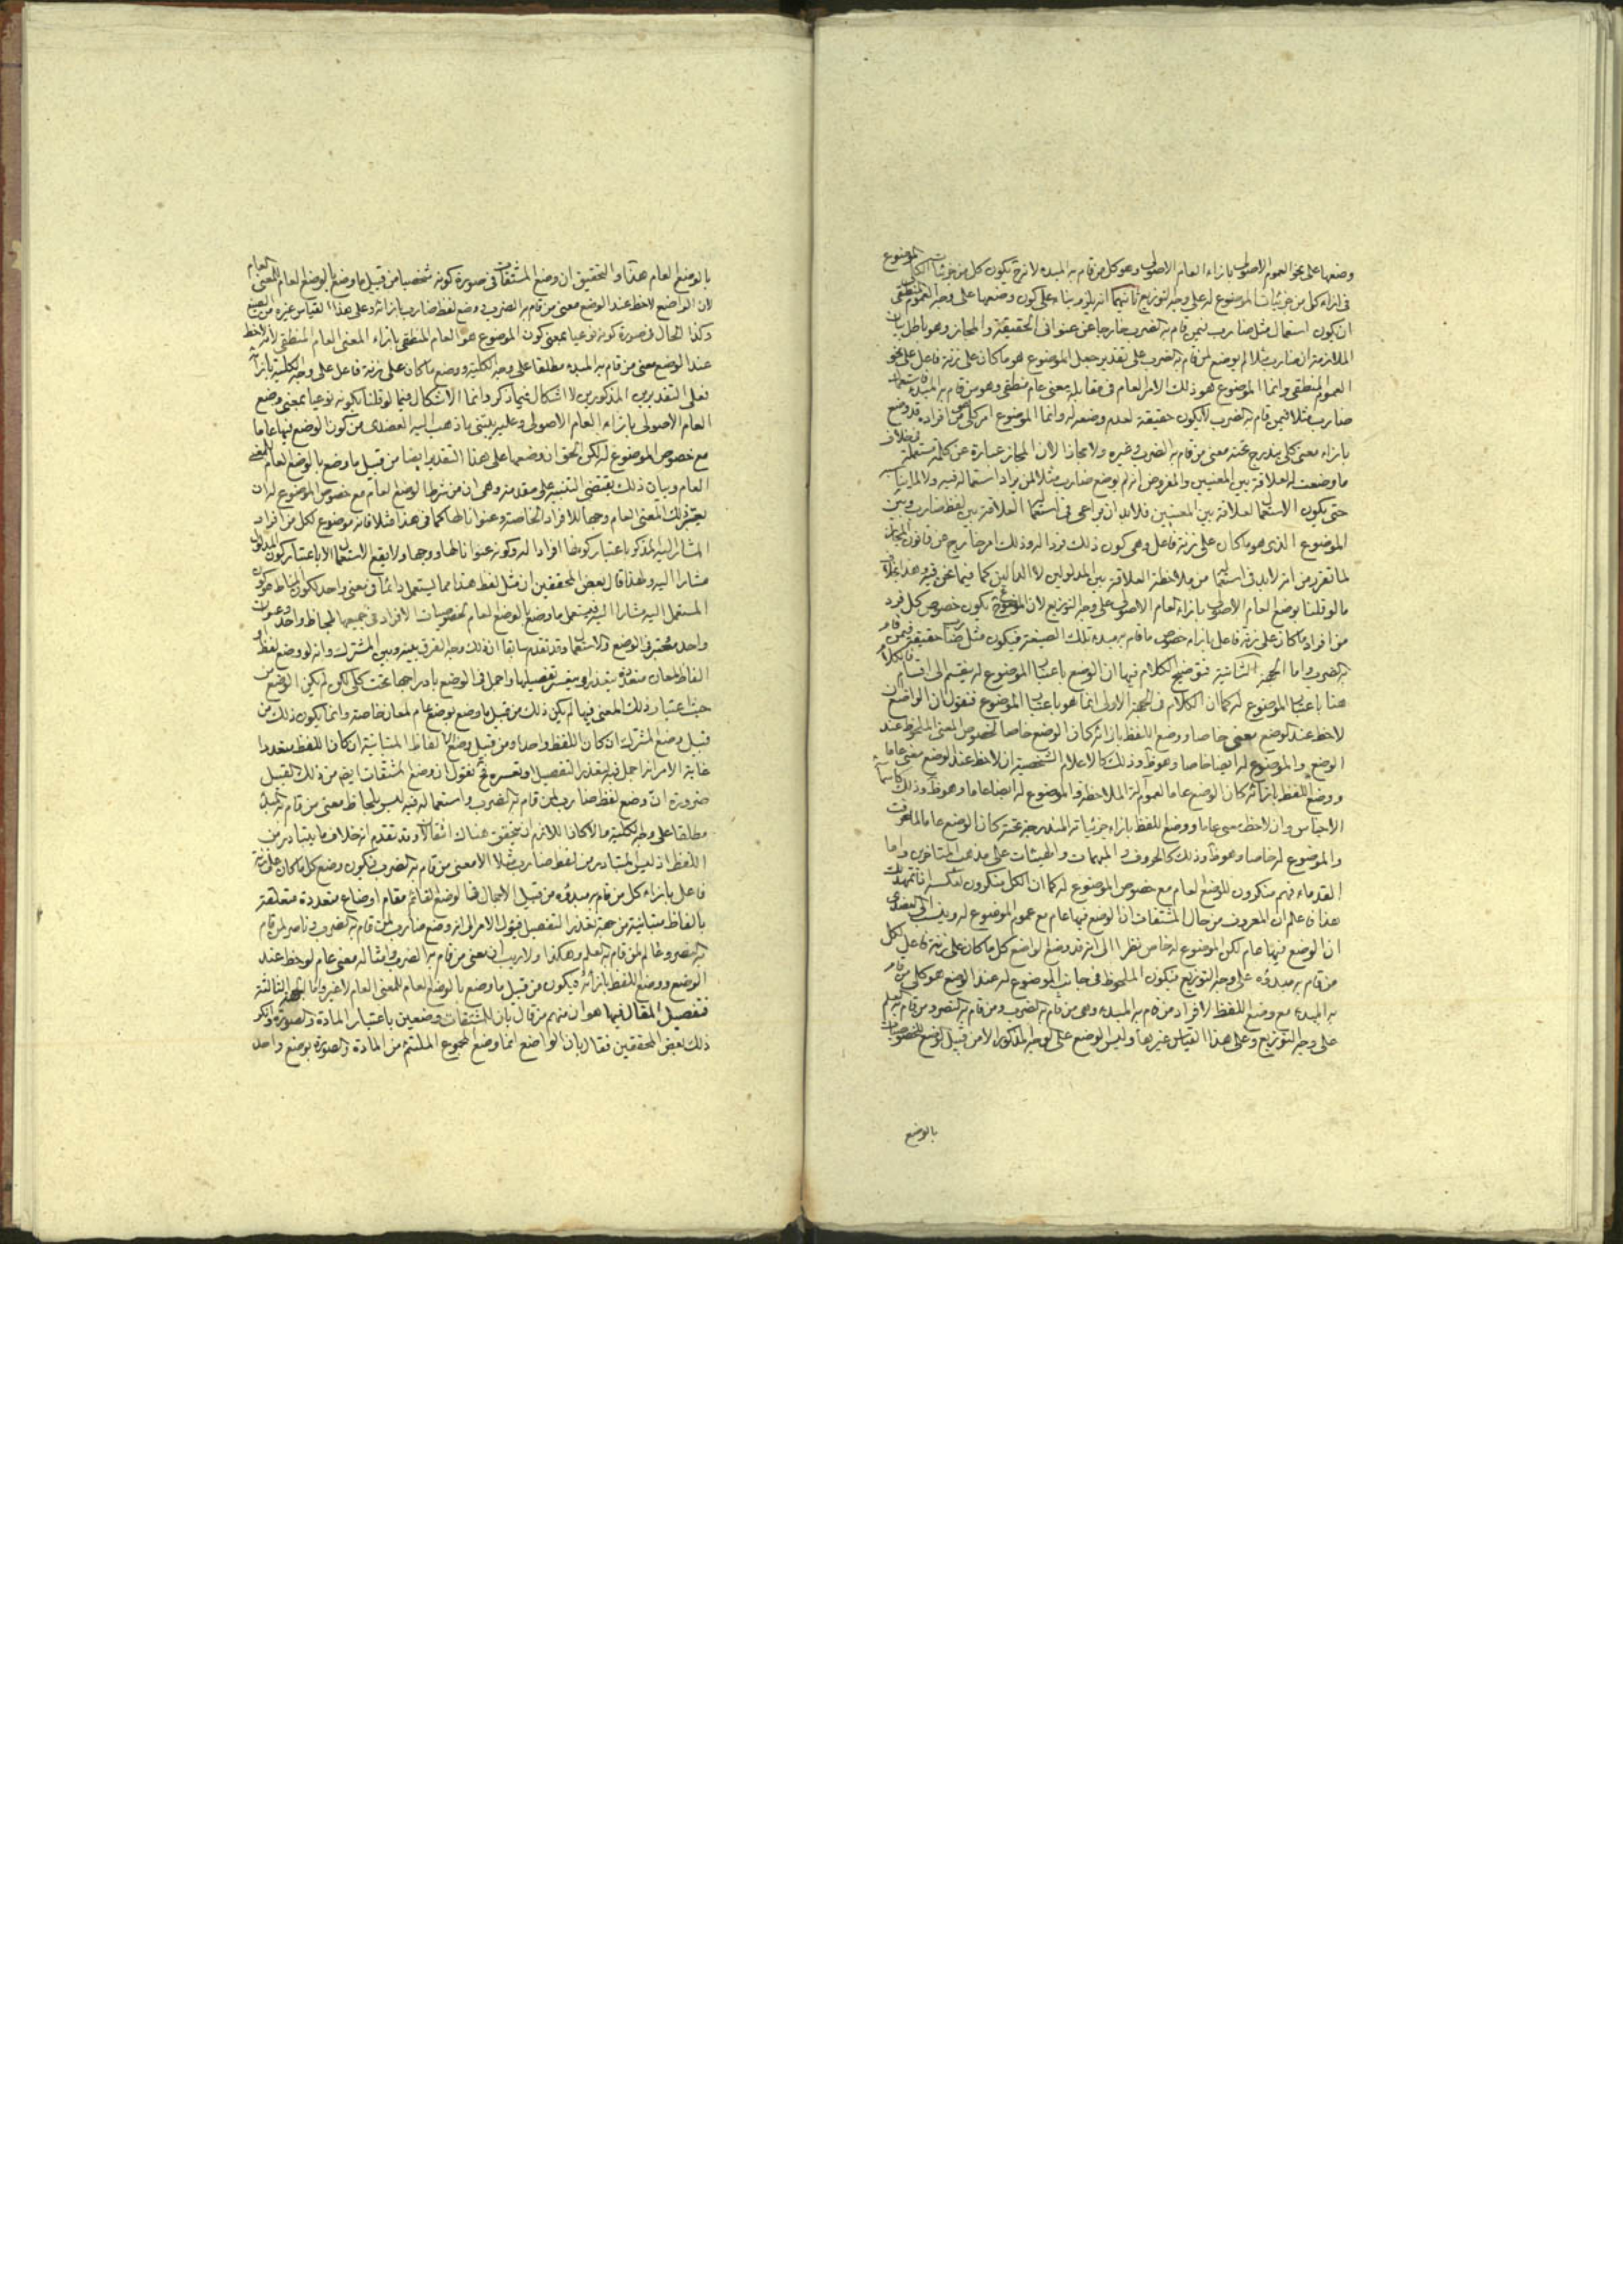 وضعها على نحو العموم الاصولى بازاء العام الاصولى وهو كل من قام به المبدء لانه ح يكون كل من جزئيات الموضوع
فى ازاء كل من جزئيات الموضوع له على وجه التوزيع ثانيهما انه يلزم بناء على كون وضعها على وجه العموم المنطقى
ان يكون استعمال مثل ضارب فيمن قام به الضرب خارجا عن عنوانى الحقيقة والمجاز وهو باطل بيان
الملازمة ان ضارب مثلا لم يوضع لمن قام به الضرب على تقدير جعل الموضوع هو ما كان على زنة فاعل على نحو
العموم المنطقى وانما الموضوع هو ذلك الامر العام فى مقابلة معنى عام منطقى وهو من قام به المبدء
ضارب مثلا فيمن قام به الضرب لا يكون حقيقة لعدم وضعه له وانما الموضوع امر كلى من افراده قد وضع
بازاء معنى كلى يندرج تحته معنى من قام به الضرب وغيره ولا مجازا لان المجاز عبارة عن كلمة مستعملة فى خلاف
ما وضعت له لعلاقة بين المعنيين والمفروض انه لم يوضع ضارب مثلا لمن يراد استعماله فيه ولا لما يناسبه
حتى يكون الاستعمال لعلاقة بين المعنيين فلابد ان يراعى فى استعماله العلاقة بين لفظ ضارب وبين
الموضوع الذى هو ما كان على زنة فاعل وهى كون ذلك فردا له وذلك امر خارج عن قانون المجاز
لما تقرر من انه لابد فى استعماله من ملاحظة العلاقة بين المدلولين لا الدالين كما فيما نحن فيه هذا بخلاف
ما لو قلنا بوضع العام الاصولى بازاء العام الاصولى على وجه التوزيع لان الموضوع ح يكون خصوص كل فرد
من افراد ما كان على زنة فاعل بازاء خصوص ما قام به مبدء تلك الصيغة فيكون مثل ضارب حقيقة فيمن قام
به الضرب واما الجهة الثانية فتوضيح الكلام فيها ان الوضع باعتبار الموضوع له ينقسم الى اقسام فالكلام
هنا باعتبار الموضوع له كما ان الكلام فى الجهة الاولى انما هو باعتبار الموضوع فنقول ان الواضع ان
لاحظ عند الوضع معنى خاصا ووضع اللفظ بازائه كان الوضع خاصا لخصوص المعنى الملحوظ عند
الوضع والموضوع له ايضا خاصا وهو ظ وذلك كالاعلام الشخصية ان لاحظ عند الوضع معنى عاما
ووضع اللفظ بازائه كان الوضع عاما لعموم آلة الملاحظة والموضوع له ايضا عاما وهو ظ وذلك كاسماء
الاجناس وان لاحظ معنى عاما ووضع اللفظ بازاء جزئياته المندرجة تحته كان الوضع عاما لما عرفت
والموضوع له خاصا وهو ظ وذلك كالحروف والمبهمات والهيئات على مذهب المتاخرين واما
القدماء فهم منكرون للوضع العام مع خصوص الموضوع له كما ان الكل منكرون لعكسه اذا تمهدت
هذا فاعلم ان المعروف من حال المشتقات ان الوضع فيها عام مع عموم الموضوع له وينسب الى العضدى
ان الوضع فيها عام لكن الموضوع له خاص نظرا الى انه قد وضع الواضع كل ما كان على زنة فاعل لكل
من قام به مبدؤه على وجه التوزيع فيكون الملحوظ فى جانب الموضوع له عند الوضع هو كلى من قام
به المبدء مع وضع اللفظ لافراد من قام به المبدء وهى من قام به الضرب ومن قام به النصر ومن قام به العلم
على وجه التوزيع وعلى هذا القياس غيرها وليس الوضع على الوجه المذكور الا من قبيل الوضع للخصوصيات
بالوضع
بالوضع العام هذا والتحقيق ان وضع المشتقات فى صورة كونه شخصيا من قبيل ما وضع بالوضع العام للمعنى العام
لان الواضع لاحظ عند الوضع معنى من قام به الضرب ووضع لفظ ضارب بازائه وعلى هذا القياس غيره من الصيغ
وكذا الحال فى صورة كونه نوعيا بمعنى كون الموضوع هو العام المنطقى بازاء المعنى العام المنطقى لانه لاحظ
عند الوضع معنى من قام به المبدء مطلقا على وجه الكلية ووضع ما كان على زنة فاعل على وجه الكلية بازائه
فعلى التقديرين المذكورين لا اشكال فيما ذكر وانما الاشكال فيما لو قلنا بكونه نوعيا بمعنى وضع
العام الاصولى بازاء العام الاصولى وعليه يبتنى ما ذهب اليه العضدى من كون الوضع فيها عاما
مع خصوص الموضوع له لكن الحق ان وضعها على هذا التقدير ايضا من قبيل ما وضع بالوضع العام للمعنى
العام وبيان ذلك يقتضى التنبيه على مقدمة وهى ان من شرط الوضع العام مع خصوص الموضوع له ان
يعتبر ذلك المعنى العام وجها للافراد الخاصة وعنوانا لها كما فى هذا مثلا فانه موضوع لكل من افراد
المشار اليه المذكر باعتبار كونها افرادا له وكونه عنوانا لها ووجها ولا يقع الاستعمال الا باعتبار كون المدلول
مشارا اليه ولهذا قال بعض المحققين ان مثل لفظ هذا مما يستعمل دائما فى معنى واحد لكون المناط هو كون
المستعمل اليه مشارا اليه فيستعمل ما وضع بالوضع العام لخصوصيات الافراد فى جميعها بلحاظ واحد وعنوان
واحد معتبر فى الوضع والاستعمال وقد تقدم سابقا ان ذلك وجه الفرق بينه وبين المشترك وانه لو وضع لفظ او
الفاظ لمعان متعددة يتعذر او يتعسر تفصيلها واجمل فى الوضع بادراجها تحت كلى لكن لم يكن الوضع من
حيث اعتبار ذلك المعنى فيها لم يكن ذلك من قبيل ما وضع بوضع عام لمعان خاصة وانما يكون ذلك من
قبيل وضع المشترك ان كان اللفظ واحدا ومن قبيل وضع الالفاظ المتباينة ان كان اللفظ متعددا
غاية الامر انه اجمل فيه لتعذر التفصيل او تعسره فح نقول ان وضع المشتقات ايض من ذلك القبيل
ضرورة ان وضع لفظ ضارب لمن قام به الضرب واستعماله فيه ليس بلحاظ معنى من قام به المبدء
مطلقا على وجه الكلية والا لكان اللازم ان يتحقق هناك انتقالان وقد تقدم انه خلاف ما يتبادر من
اللفظ اذ ليس المتبادر من لفظ ضارب مثلا الا معنى من قام به الضرب فيكون وضع كل ما كان على زنة
فاعل بازاء كل من قام به مبدؤه من قبيل الاجمال فى الوضع القائم مقام اوضاع متعددة متعلقة
بالفاظ متباينة من جهة تعذر التفصيل فيؤل الامر الى انه وضع ضارب لمن قام به الضرب وناصر لمن قام
به النصر وعالم لمن قام به العلم وهكذا ولا ريب ان معنى من قام به الضرب وامثاله معنى عام لوحظ عند
الوضع ووضع اللفظ بازائه فيكون من قبيل ما وضع بالوضع العام للمعنى العام لا غير واما الجهة الثالثة
فتفصيل المقال فيها هو ان منهم من قال بان للمشتقات وضعين باعتبار المادة والصورة وانكر
ذلك بعض المحققين فقال بان الواضع انما وضع المجموع الملتئم من المادة والصورة بوضع واحد